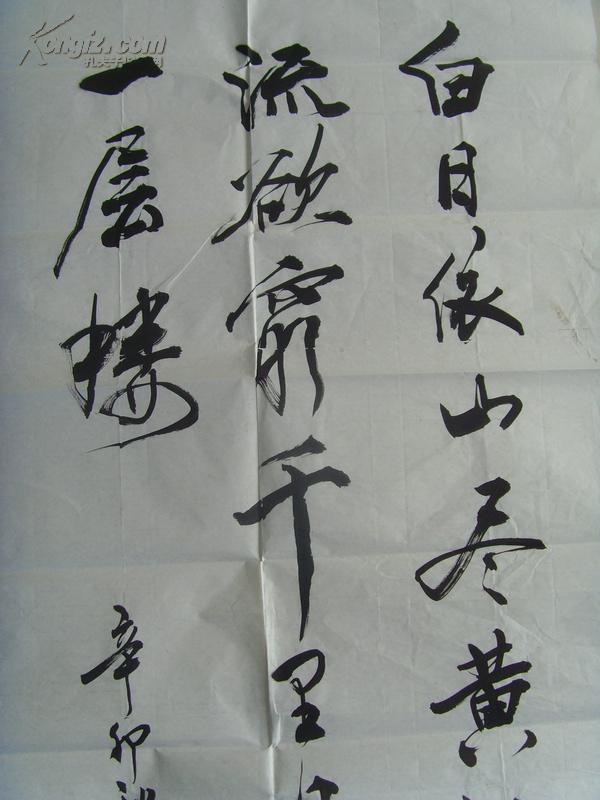 白日依山尽黄
流欲穷千里
一层楼
辛卯
Kongfz.com
孔夫子旧书网